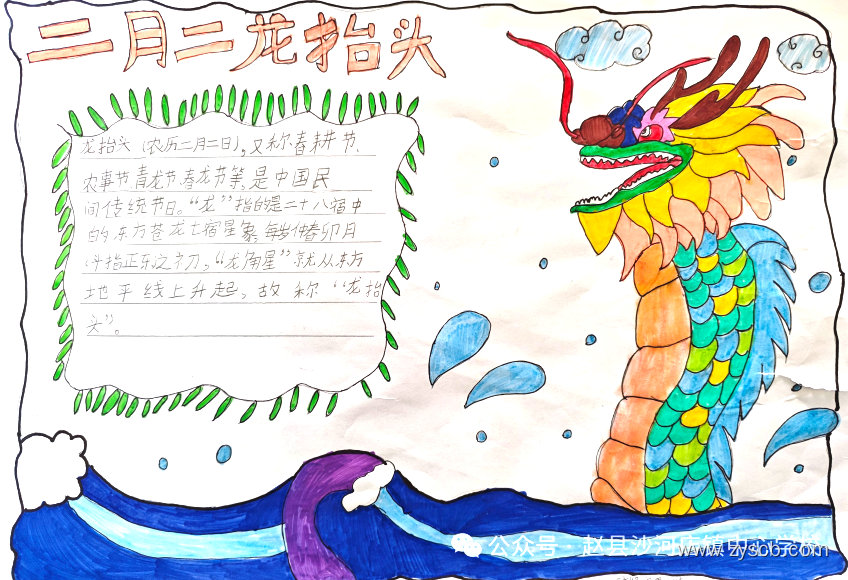 二月二龙抬头
龙抬头（农历二月二日），又称春耕节、
农事节、青龙节、春龙节等，是中国民
间传统节日。“龙”指的是二十八宿中
的东方苍龙七宿星象，每岁仲春卯月
斗指正东之初，“龙角星”就从东方
地平线上升起，故称“龙抬
头”。
公众号·赵县沙河店镇中心学校
www.zyscb.com